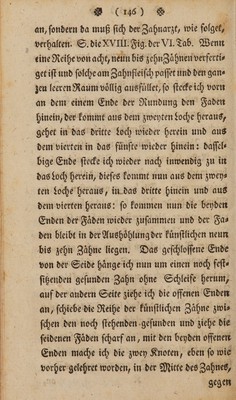 ( 146 )
an, sondern da muß sich der Zahnarzt, wie folget,
verhalten. S. die XVIII. Fig. der VI. Tab. Wenn
eine Reihe von acht, neun bis zehn Zähnen verferti-
get ist und solche am Zahnfleisch passet und den gan-
zen leeren Raum völlig ausfüllet, so stecke ich vorn
an dem einem Ende der Rundung den Faden
hinein, der kommt aus dem zweyten Loche heraus,
gehet in das dritte Loch wieder herein und aus
dem vierten in das fünfte wieder hinein: dassel-
bige Ende stecke ich wieder nach inwendig zu in
das Loch herein, dieses kommt nun aus dem zwey-
ten Loche heraus, in das dritte hinein und aus
dem vierten heraus: so kommen nun die beyden
Enden der Fäden wieder zusammen und der Fa-
den bleibt in der Aushöhlung der künstlichen neun
bis zehn Zähne liegen. Das geschlossene Ende
von der Seide hänge ich nun um einen noch fest-
sitzenden gesunden Zahn ohne Schleife herum,
auf der andern Seite ziehe ich die offenen Enden
an, schiebe die Reihe der künstlichen Zähne zwi-
schen den noch stehenden gesunden und ziehe die
seidenen Fäden scharf an, mit den beyden offenen
Enden mache ich die zwey Knoten, eben so wie
vorher gelehret worden, in der Mitte des Zahnes,
gegen